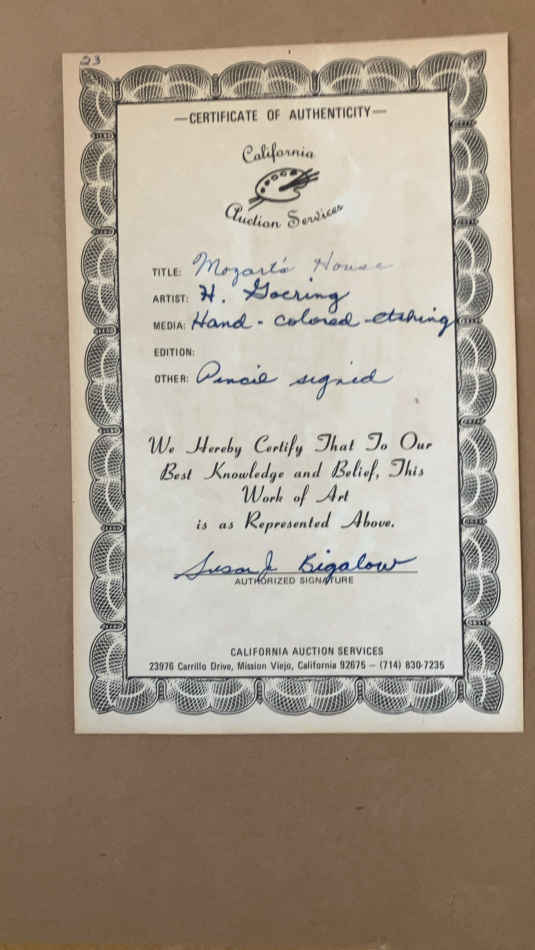 23
—CERTIFICATE OF AUTHENTICITY—
California
Auction Services
TITLE: Mozart's House
ARTIST: H. Goering
MEDIA: Hand-colored-etching
EDITION:
OTHER: Pencil signed
We Hereby Certify That To Our
Best Knowledge and Belief, This
Work of Art
is as Represented Above.
Susan J. Bigalow
AUTHORIZED SIGNATURE
CALIFORNIA AUCTION SERVICES
23976 Carrillo Drive, Mission Viejo, California 92675 – (714) 830-7235